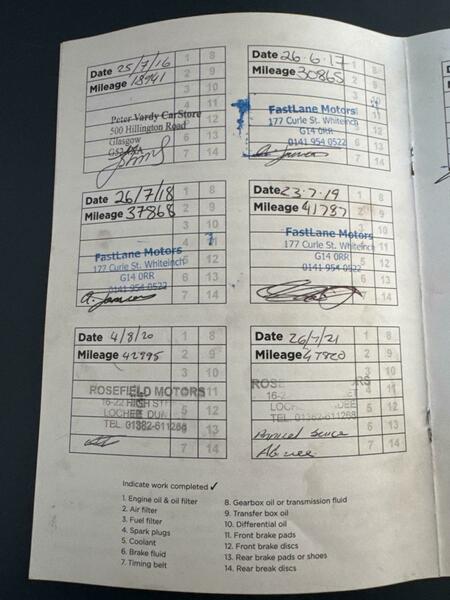 Date 25/7/16 1 8
Mileage 18941 2 9
3 10
4 11
Peter Vardy CarStore
500 Hillington Road 5 12
Glasgow 6 13
7 14
Date 26.6.17 1 8
Mileage 30865 2 9
3 10
FastLane Motors
177 Curle St. Whiteinch 5 12
G14 0RR 6 13
0141 954 0522
7 14
Date 26/7/18 1 8
Mileage 37868 2 9
3 10
FastLane Motors 4 11
177 Curle St. Whiteinch 5 12
G14 0RR 6 13
0141 954 0522
A. James 7 14
Date 23.7.19 1 8
Mileage 41787 2 9
3 10
FastLane Motors 4 11
177 Curle St. Whiteinch 5 12
G14 0RR 6 13
0141 954 0522
7 14
Date 4/8/20 1 8
Mileage 42995 2 9
3 10
ROSEFIELD MOTORS 11
16-22 HIGH ST 5 12
LOCHEE
TEL. 01382-611266 13
7 14
Date 26/7/21 1 8
Mileage 47820 2 9
3 10
4 11
16-22 5 12
TEL. 01382-611266
6 13
7 14
Indicate work completed ✓
1. Engine oil & oil filter
2. Air filter
3. Fuel filter
4. Spark plugs
5. Coolant
6. Brake fluid
7. Timing belt
8. Gearbox oil or transmission fluid
9. Transfer box oil
10. Differential oil
11. Front brake pads
12. Front brake discs
13. Rear brake pads or shoes
14. Rear break discs